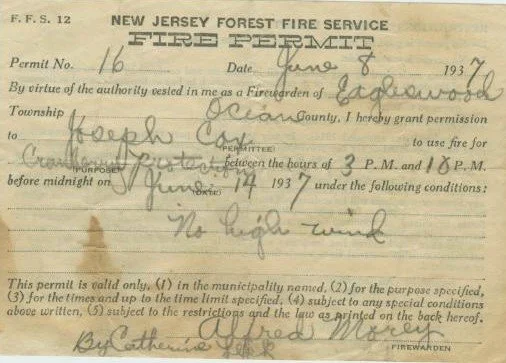 F. F. S. 12 NEW JERSEY FOREST FIRE SERVICE
FIRE PERMIT
Permit No. 16 Date June 8 1937
By virtue of the authority vested in me as a Firewarden of Eagleswood
Township Ocean County, I hereby grant permission
to Joseph Cox to use fire for
(PERMITTEE)
Cranberry Protection between the hours of 3 P. M. and 10 P. M.
(PURPOSE)
before midnight on June 14 1937 under the following conditions:
(DATE)
No high wind
This permit is valid only, (1) in the municipality named, (2) for the purpose specified,
(3) for the times and up to the time limit specified, (4) subject to any special conditions
above written, (5) subject to the restrictions and the law as printed on the back hereof.
Alfred Morey
By Catherine FIREWARDEN